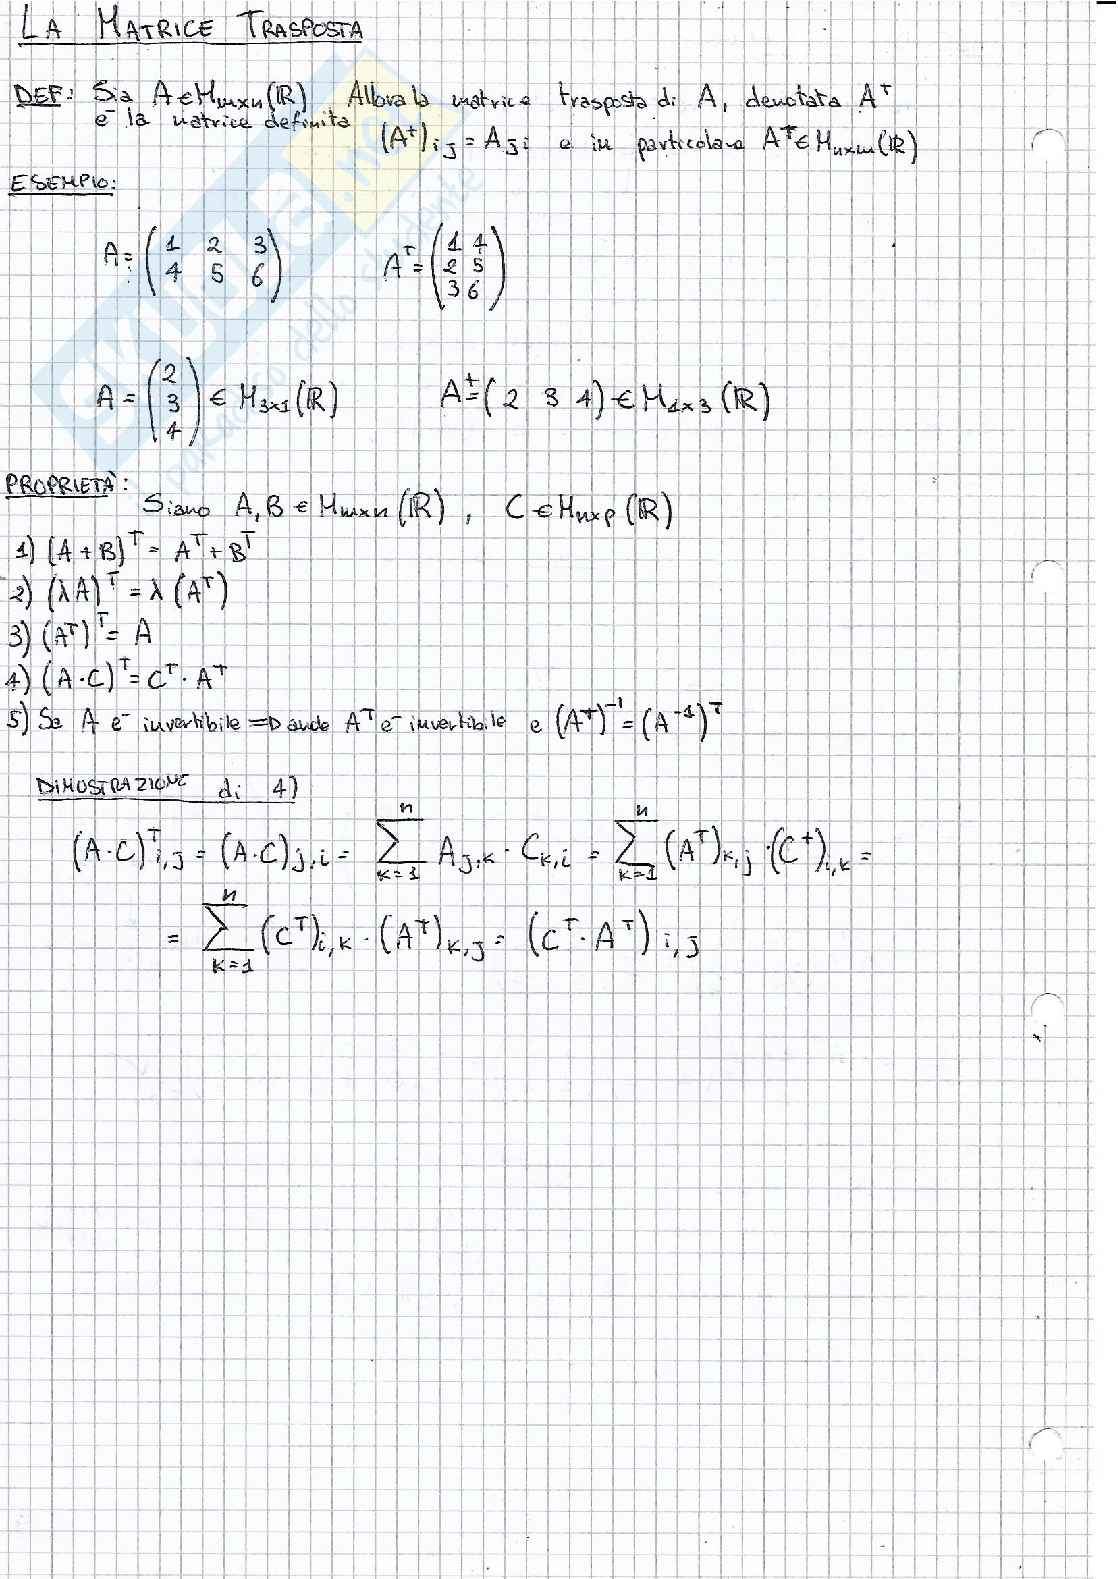 LA MATRICE TRASPOSTA
DEF: Sia A ∈ M_{m×n}(ℝ) Allora la matrice trasposta di A, denotata A^T
è la matrice definita (A^T)_{ij} = A_{ji} e in particolare A^T ∈ M_{n×m}(ℝ)
ESEMPIO:
A = (1 2 3
4 5 6)
A^T = (1 4
2 5
3 6)
A = (2
3
4) ∈ M_{3×1}(ℝ)
A^T = (2 3 4) ∈ M_{1×3}(ℝ)
PROPRIETÀ:
Siano A, B ∈ M_{m×n}(ℝ), C ∈ M_{n×p}(ℝ)
1) (A + B)^T = A^T + B^T
2) (λA)^T = λ(A^T)
3) (A^T)^T = A
4) (A·C)^T = C^T · A^T
5) Se A è invertibile ⇒ anche A^T è invertibile e (A^T)^{-1} = (A^{-1})^T
DIMOSTRAZIONE di 4)
(A·C)^T_{i,j} = (A·C)_{j,i} = ∑_{k=1}^{n} A_{j,k} · C_{k,i} = ∑_{k=1}^{n} (A^T)_{k,j} · (C^T)_{i,k} =
= ∑_{k=1}^{n} (C^T)_{i,k} · (A^T)_{k,j} = (C^T · A^T)_{i,j}